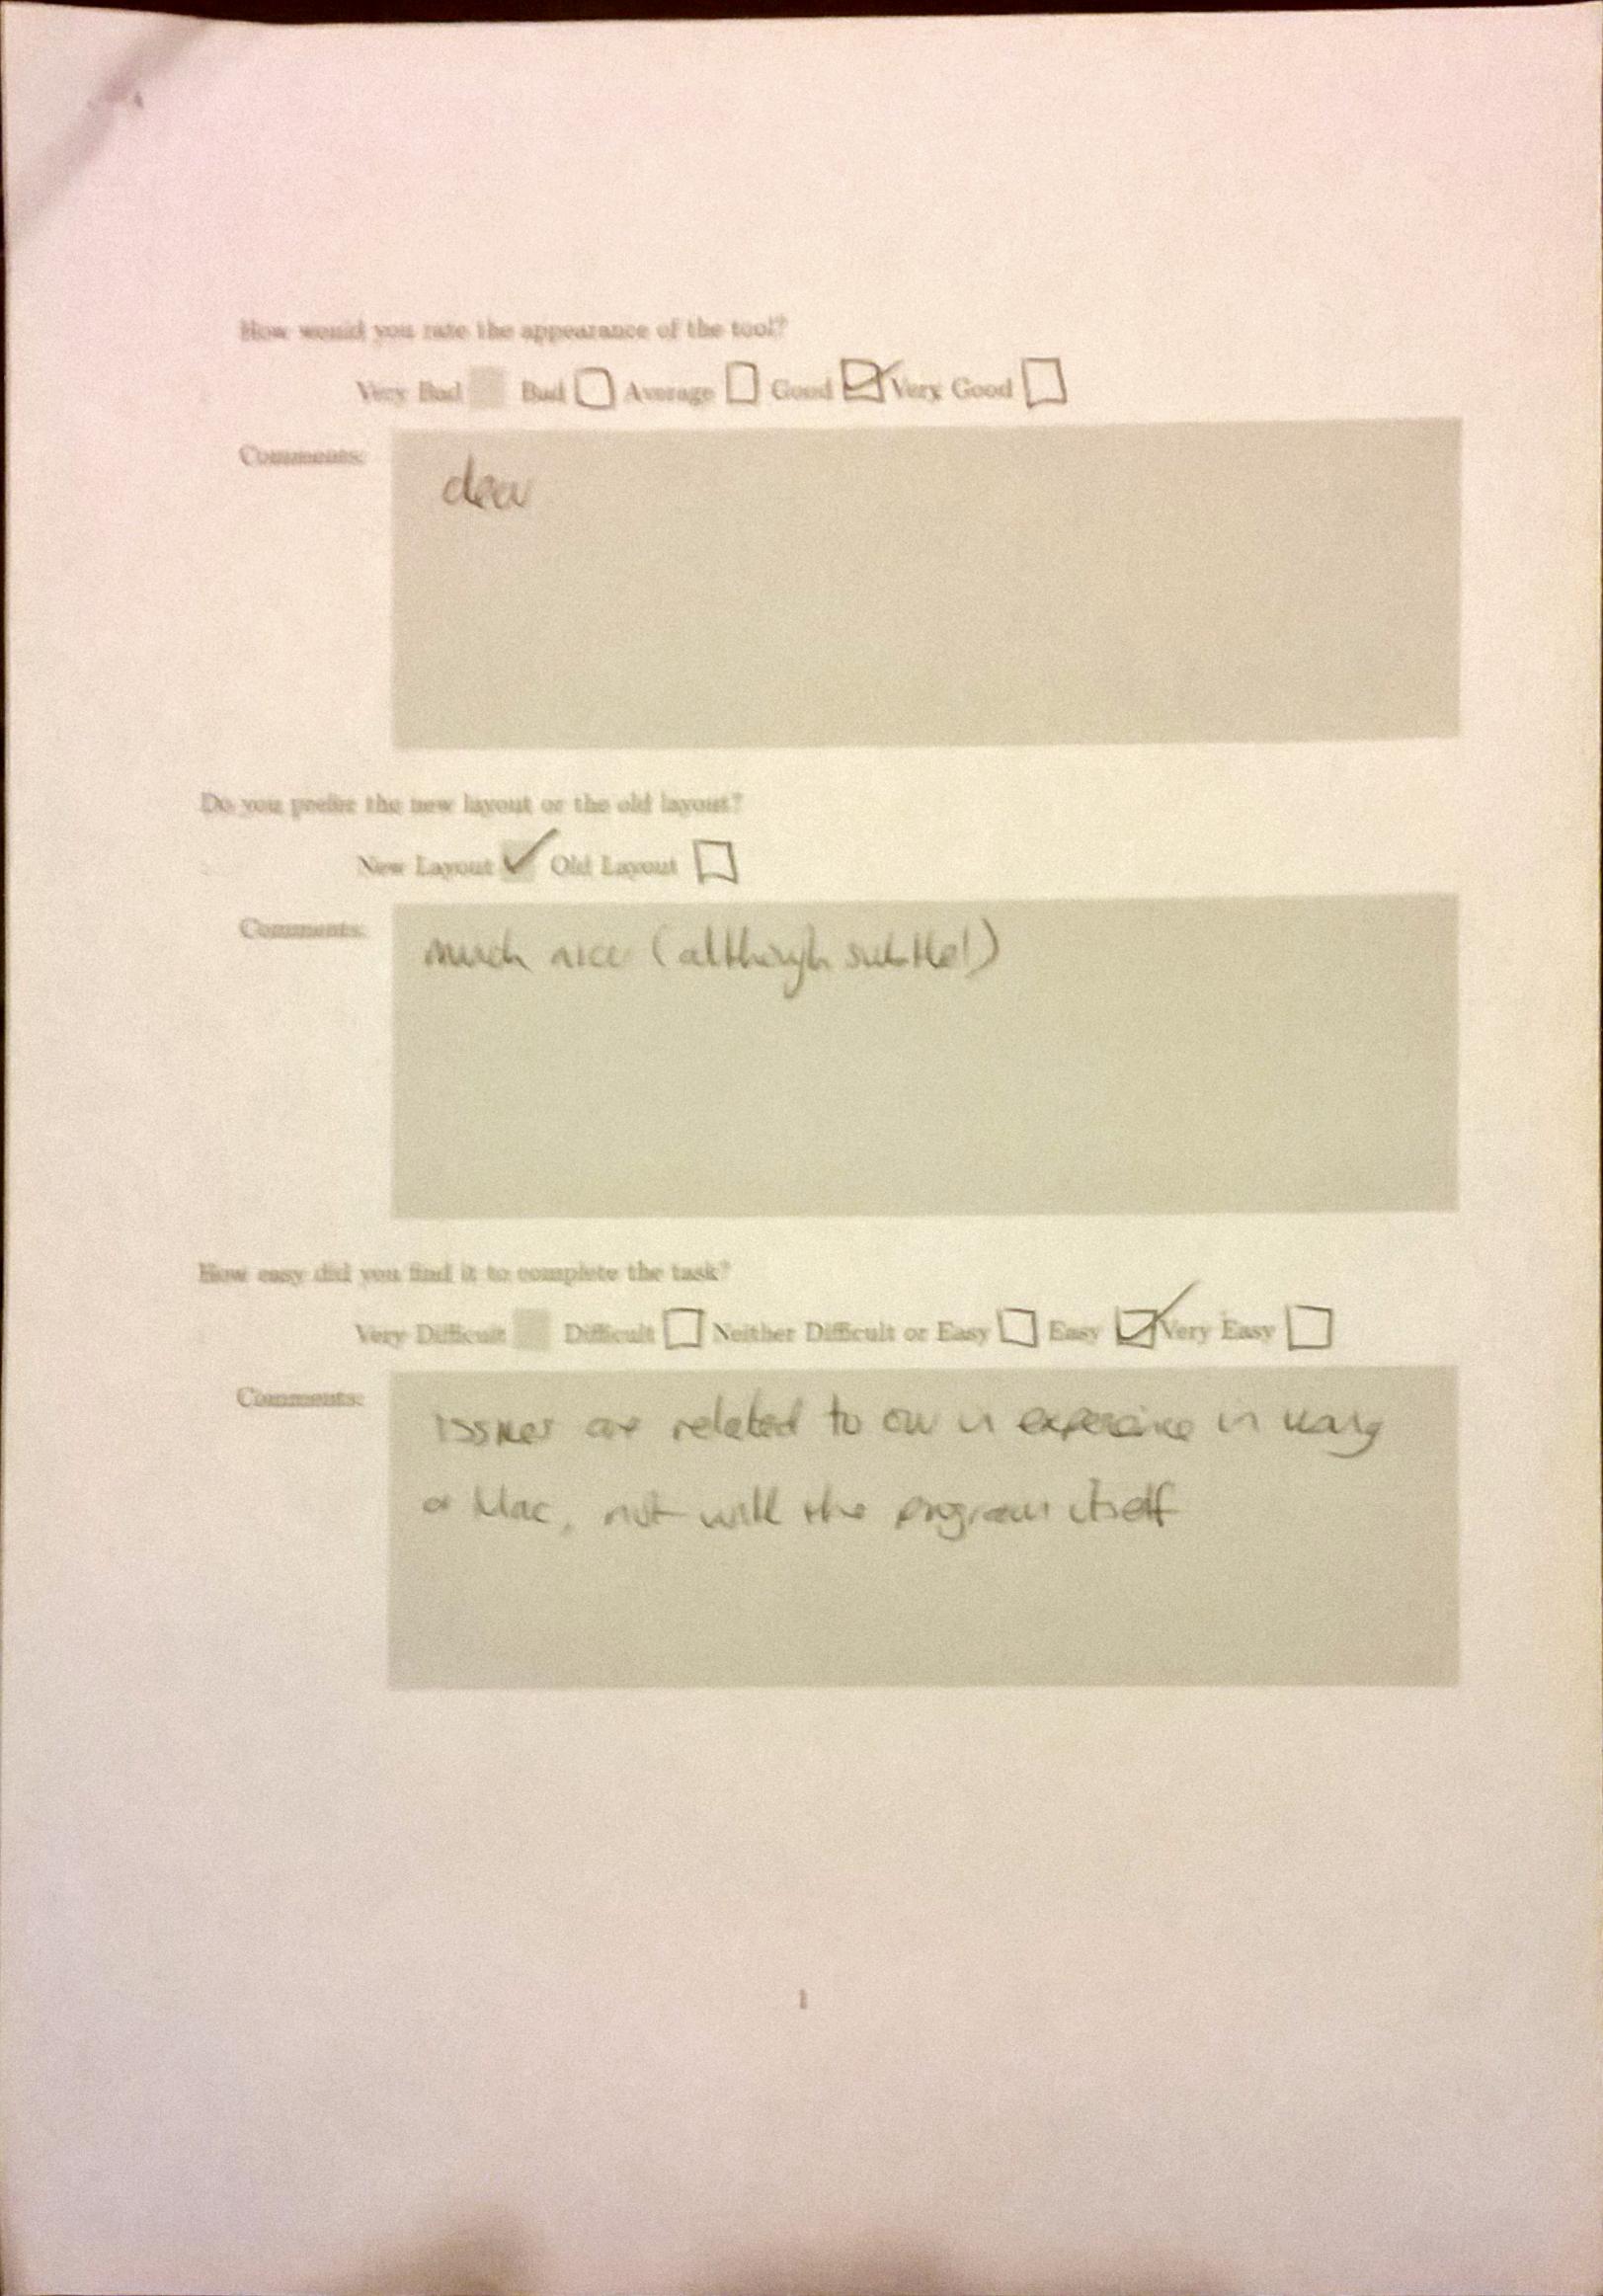 How would you rate the appearance of the tool?
Very Bad Bad Average Good Very Good
Comments:
clear
Do you prefer the new layout or the old layout?
New Layout Old Layout
Comments:
much nicer (although subtle!)
How easy did you find it to complete the task?
Very Difficult Difficult Neither Difficult or Easy Easy Very Easy
Comments:
issues are related to own experience in using
a Mac, not with the program itself
1